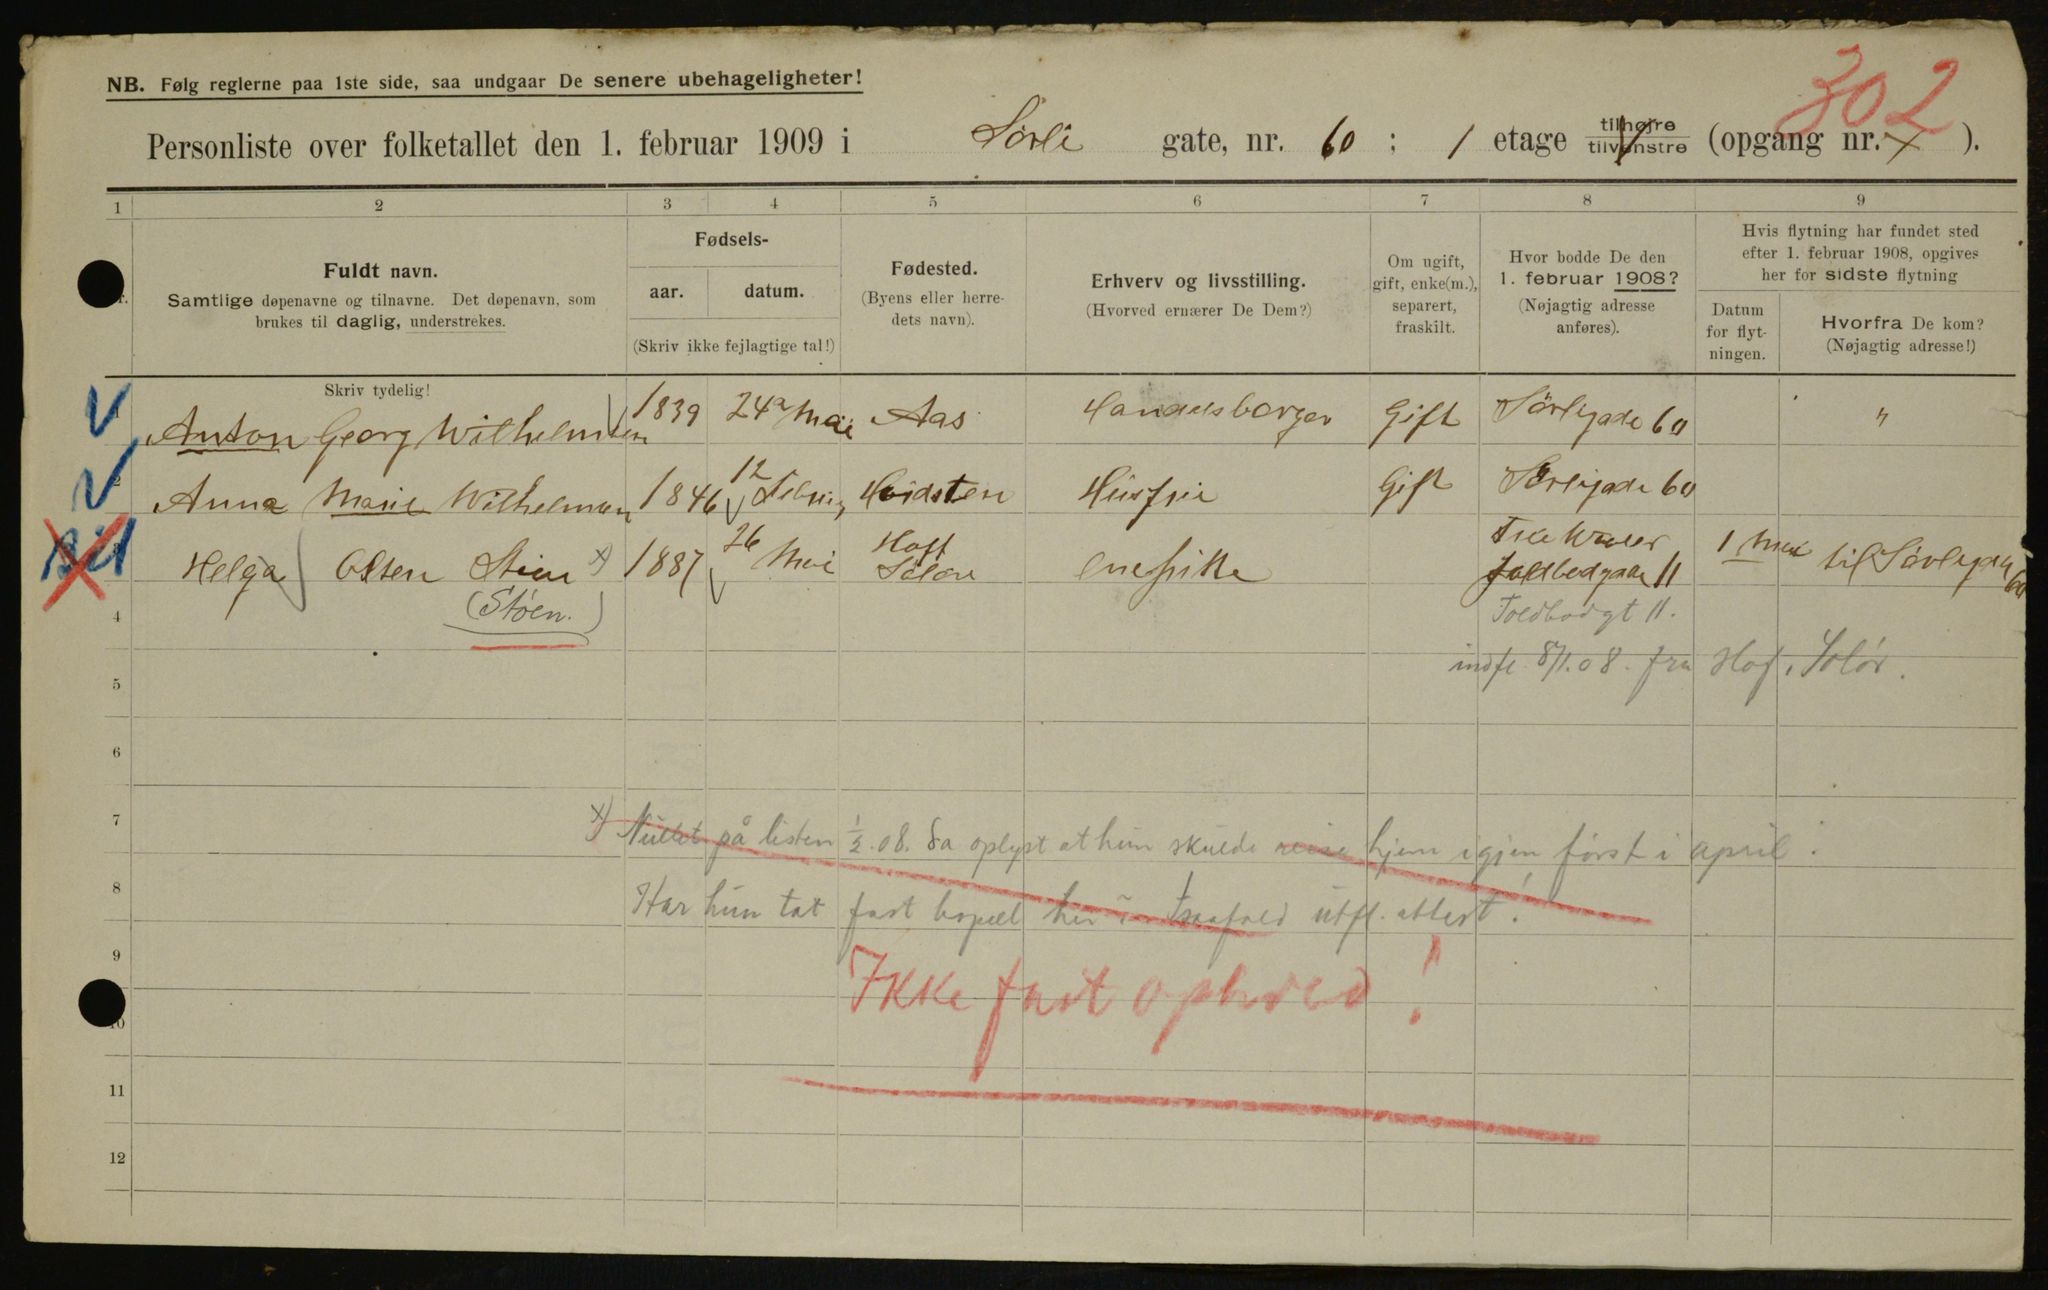 302
NB. Følg reglerne paa 1ste side, saa undgaar De senere ubehageligheter!
Personliste over folketallet den 1. februar 1909 i Sörli gate, nr. 60 ; 1 etage tilhøjre tilvenstre (opgang nr. ).
1 2 3 4 5 6 7 8 9
Fuldt navn.
Samtlige døpenavne og tilnavne. Det døpenavn, som
brukes til daglig, understrekes.
Skriv tydelig!
Fødsels-
aar. datum.
(Skriv ikke fejlagtige tal!)
Fødested.
(Byens eller herre-
dets navn).
Erhverv og livsstilling.
(Hvorved ernærer De Dem?)
Om ugift,
gift, enke(m.),
separert,
fraskilt.
Hvor bodde De den
1. februar 1908?
(Nøjagtig adresse
anføres).
Hvis flytning har fundet sted
efter 1. februar 1908, opgives
her for sidste flytning
Datum
for flyt-
ningen.
Hvorfra De kom?
(Nøjagtig adresse!)
Anton Georg Wilhelmsen 1839 24de Mai Aas Handelsborger Gift Sörligade 60 "
2 Anna Marie Wilhelmsen 1846 12 Februar Hvidsten Husfrue Gift Sörligade 60
3 Helga Olsen Steen x) 1887 26 Mai Hoff Solör Enepike Toldbodgade 11 1 Mai til Sörligade 60
4 (Støen.) Toldbodgt 11.
5 indfl. 8/1.08. fra Hof, Solör.
6
7 x) Nullet på listen 1/2.08. da oplyst at hun skulde reise hjem igjen først i april.
8 Har hun tat fast bopæl her? I saafald utfl. attest!
9 Ikke fast ophold!
10
11
12